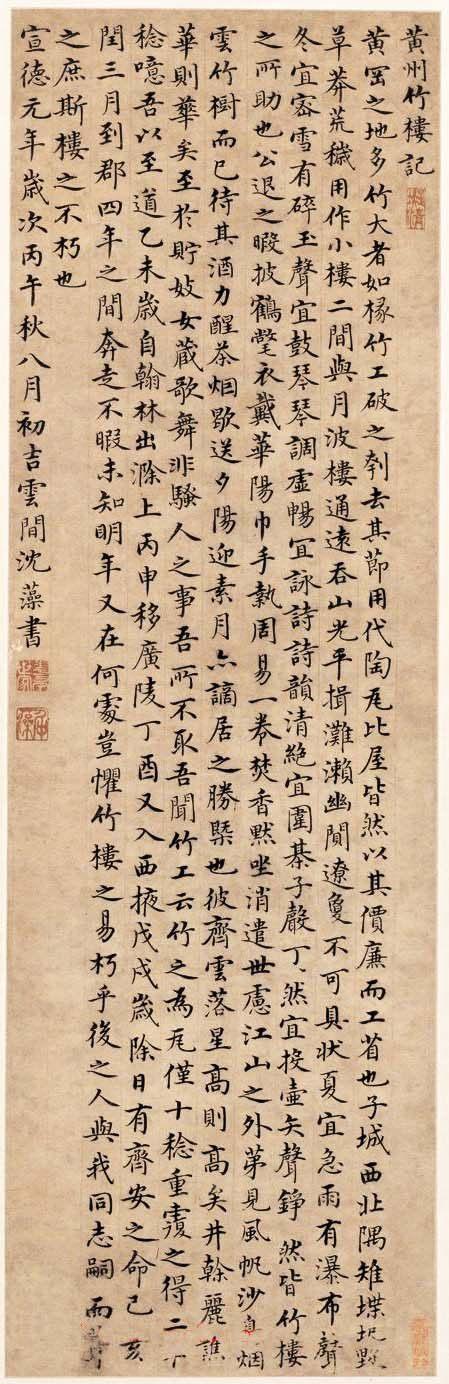 黃州竹樓記
黃岡之地多竹大者如椽竹工破之刳去其節用代陶瓦比屋皆然以其價廉而工省也子城西北隅雉堞圯毀
草莽荒穢用作小樓二間與月波樓通遠吞山光平揖灘瀨幽闃遼夐不可具狀夏宜急雨有瀑布聲
冬宜密雪有碎玉聲宜鼓琴琴調虛暢宜詠詩詩韻清絕宜圍棊子聲丁丶然宜投壺矢聲錚然皆竹樓
之所助也公退之暇披鶴氅衣戴華陽巾手執周易一卷焚香默坐消遣世慮江山之外第見風帆沙鳥烟
雲竹樹而已待其酒力醒茶烟歇送夕陽迎素月亦謫居之勝槩也彼齊雲落星高則高矣井幹麗譙
華則華矣至於貯妓女藏歌舞非騷人之事吾所不取吾聞竹工云竹之為瓦僅十稔重覆之得二十
稔噫吾以至道乙未歲自翰林出滁上丙申移廣陵丁酉又入西掖戊戌歲除日有齊安之命己亥
閏三月到郡四年之間奔走不暇未知明年又在何處豈懼竹樓之易朽乎後之人與我同志嗣而葺
之庶斯樓之不朽也
宣德元年歲次丙午秋八月初吉雲間沈藻書